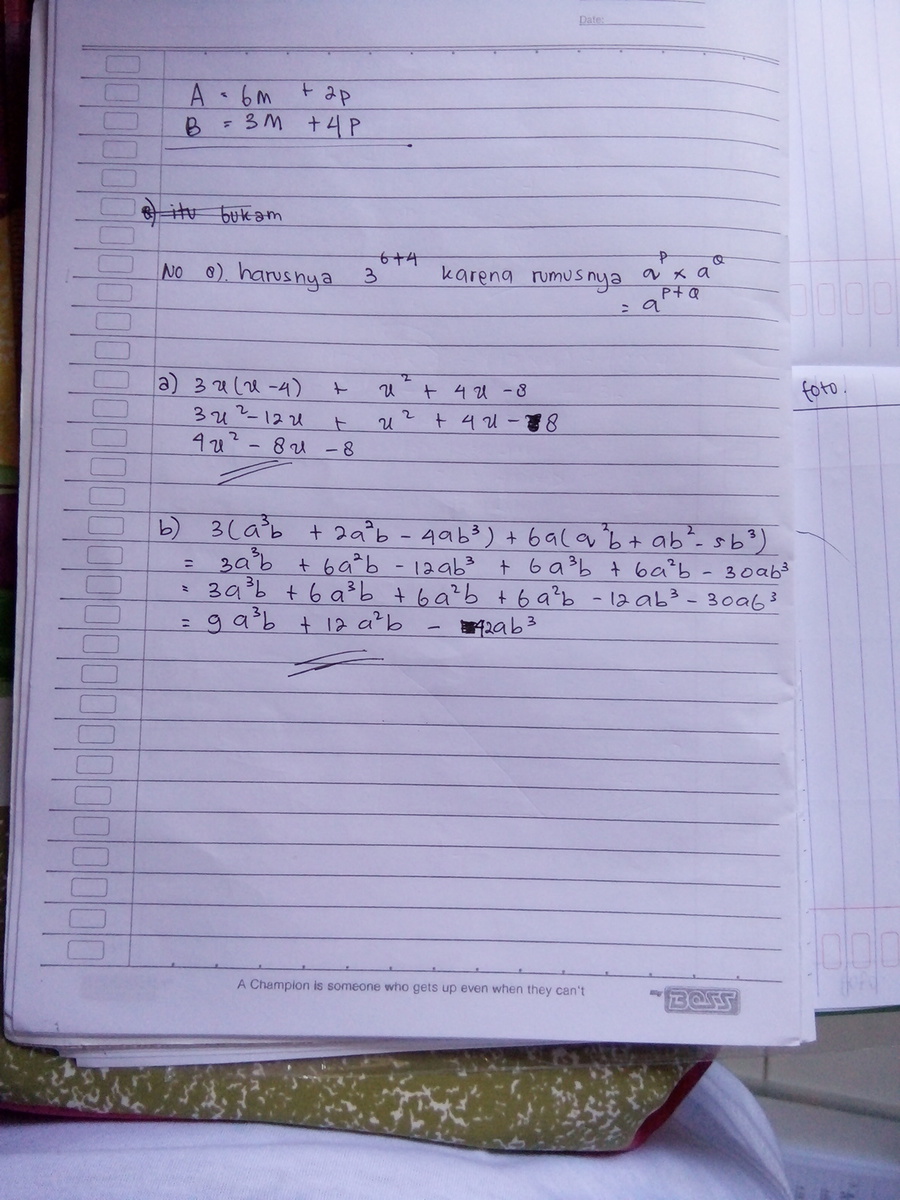 Date:
A = 6m + 2p
B = 3M + 4P
e) itu bukam
No e). harusnya 3^{6+4} karena rumusnya a^P × a^Q
= a^{P+Q}
a) 3u(u-4) + u² + 4u - 8
3u² - 12u + u² + 4u - 8
4u² - 8u - 8
b) 3(a³b + 2a²b - 4ab³) + 6a(a²b + ab² - 5b³)
= 3a³b + 6a²b - 12ab³ + 6a³b + 6a²b - 30ab³
= 3a³b + 6a³b + 6a²b + 6a²b - 12ab³ - 30ab³
= 9a³b + 12a²b - 42ab³
foto.
A Champion is someone who gets up even when they can't
BOSS